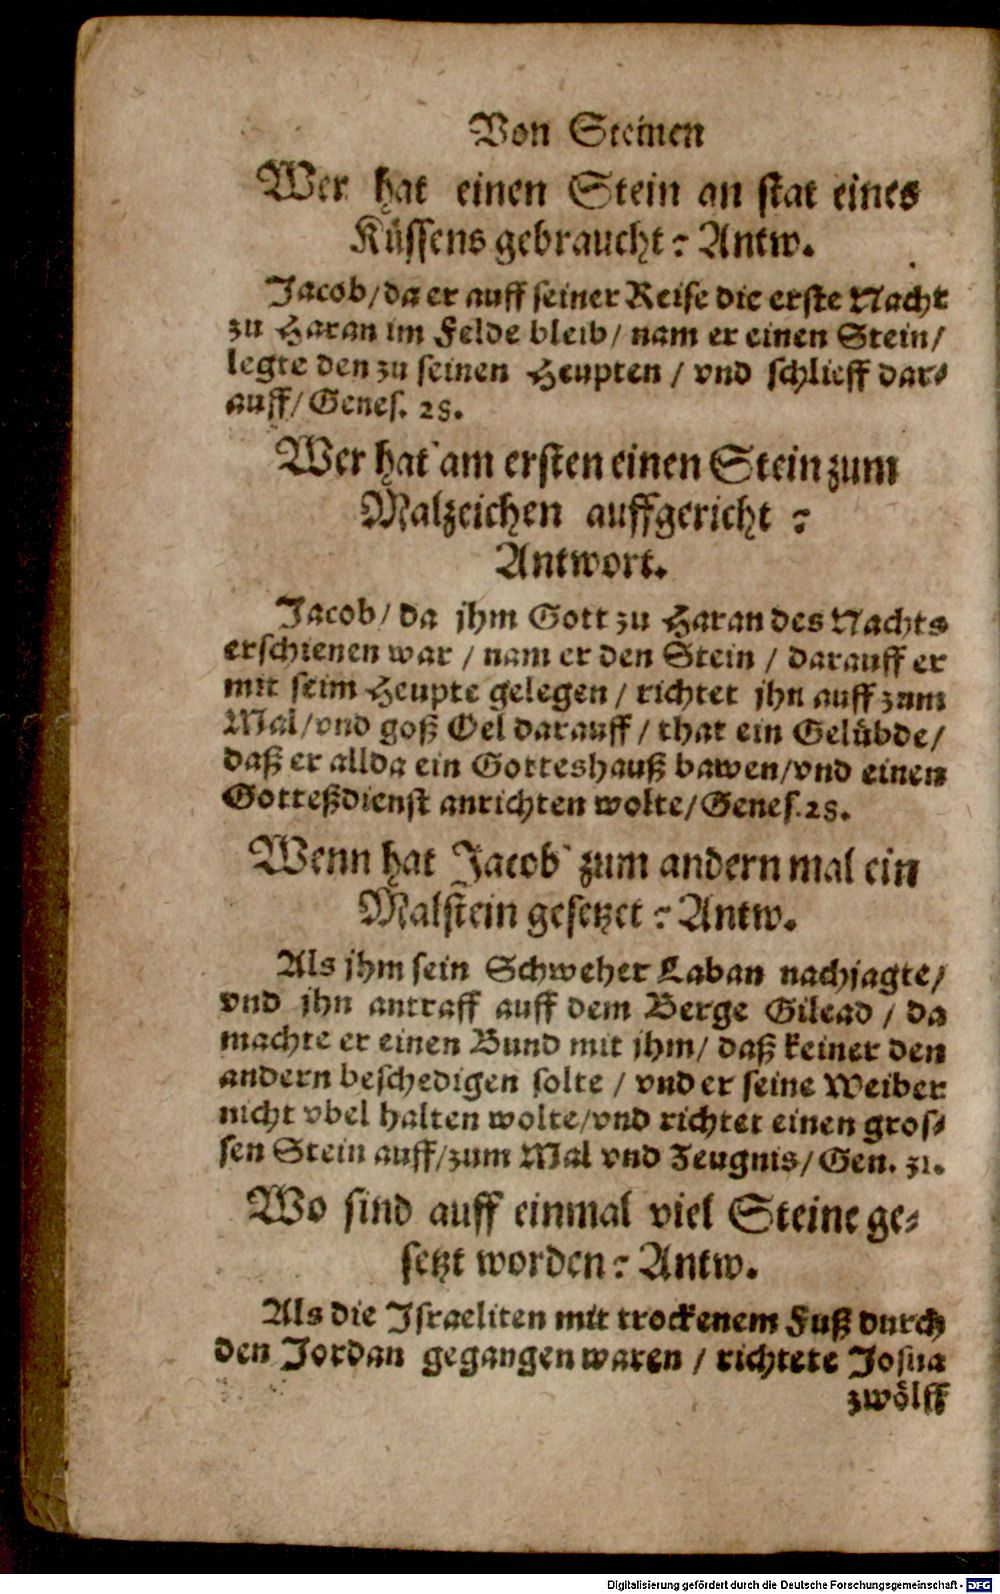 Von Steinen
Wer hat einen Stein an stat eines
Küssens gebraucht? Antw.
Jacob/ da er auff seiner Reise die erste Nacht
zu Haran im Felde bleib/ nam er einen Stein/
legte den zu seinen Heupten / vnd schlieff dar-
auff/ Genes. 28.
Wer hat am ersten einen Stein zum
Malzeichen auffgericht ?
Antwort.
Jacob/ da jhm Gott zu Haran des Nachts
erschienen war / nam er den Stein / darauff er
mit seim Heupte gelegen / richtet jhn auff zum
Mal/ vnd goß Oel darauff / that ein Gelübde/
daß er allda ein Gotteshauß bawen/ vnd einen
Gotteßdienst anrichten wolte/ Genes. 28.
Wenn hat Jacob zum andern mal ein
Malstein gesetzet? Antw.
Als jhm sein Schweher Laban nachjagte/
vnd jhn antraff auff dem Berge Gilead / da
machte er einen Bund mit jhm/ daß keiner den
andern beschedigen solte / vnd er seine Weiber
nicht vbel halten wolte/ vnd richtet einen gros-
sen Stein auff/ zum Mal vnd Zeugnis/ Gen. 31.
Wo sind auff einmal viel Steine ge-
setzt worden? Antw.
Als die Israeliten mit trockenem Fuß durch
den Jordan gegangen waren / richtete Josua
zwölff
Digitalisierung gefördert durch die Deutsche Forschungsgemeinschaft - DFG